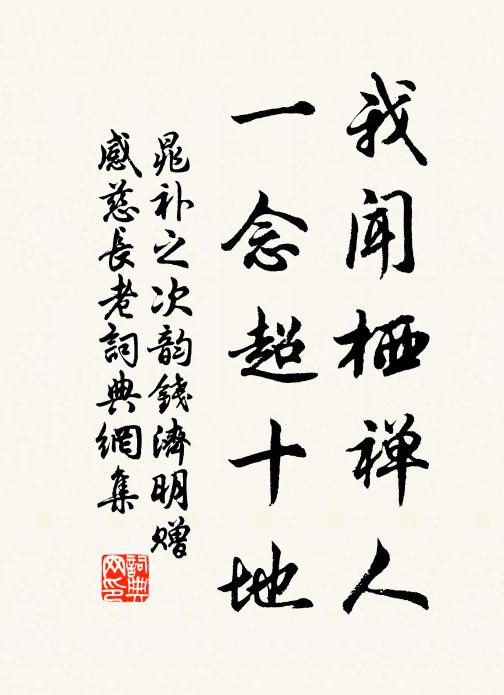 我闻栖禅人
一念超十地
晁补之次韵錢濟明赠
感慈長老詞典網集
詞典网印